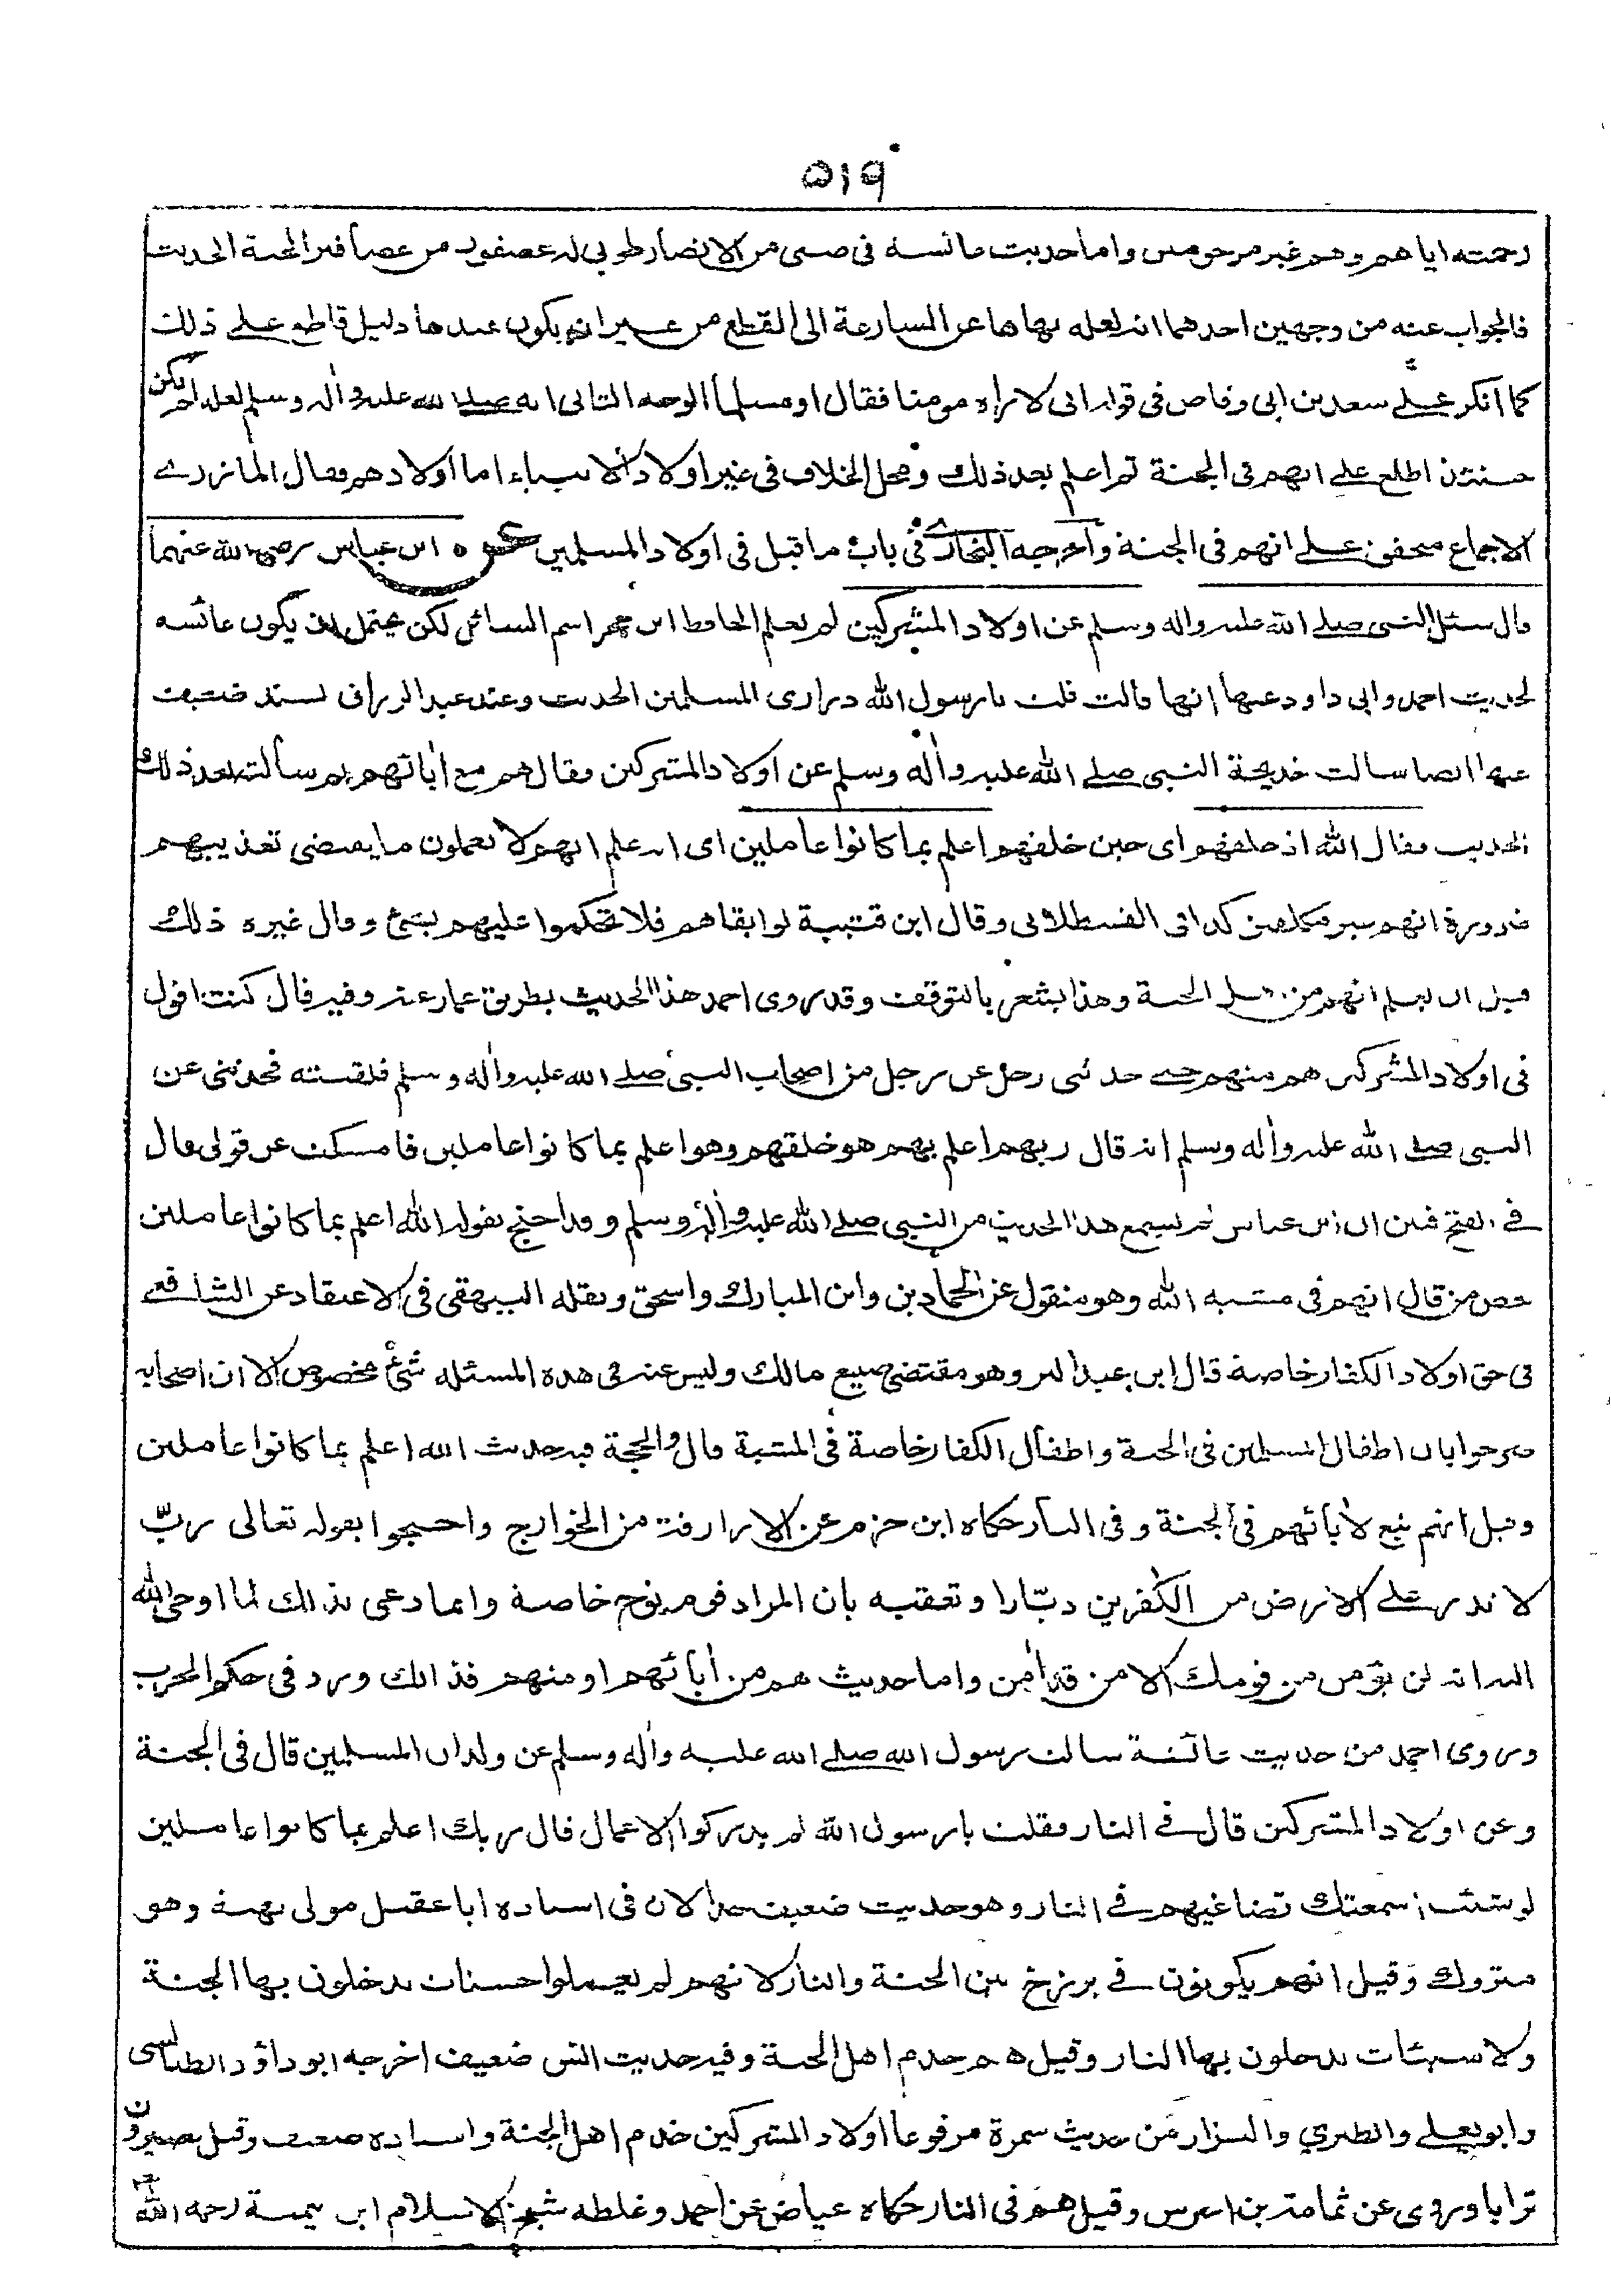 ٥١٩
رحمته اياهم وهم غير مرحومين واما حديث عائشة فى صبى من الانصار طوبى له عصفور من عصافير الجنة الحديث
فالجواب عنه من وجهين احدهما انه لعله نهاها عن المسارعة الى القطع من غير ان يكون عندها دليل قاطع على ذلك
كما انكر على سعد بن ابى وقاص فى قوله انى لاراه مومنا فقال او مسلما الوجه الثانى انه صلى الله عليه واٰله وسلم لعله لم يكن
حينئذ اطلع على انهم فى الجنة ثم اعلم بعد ذلك ومحل الخلاف فى غير اولاد الانبياء اما اولادهم فقال المازرى
الاجماع متحقق على انهم فى الجنة واخرجه البخارى فى باب ما قيل فى اولاد المسلمين عن ابن عباس رضى الله عنهما
قال سئل النبى صلى الله عليه واله وسلم عن اولاد المشركين لم يعلم الحافظ ابن حجر اسم السائل لكن يحتمل ان يكون عائشه
لحديث احمد وابى داود عنها انها قالت قلت يا رسول الله ذرارى المسلمين الحديث وعند عبد الرزاق بسند ضعيف
عنها ايضا سالت خديجة النبى صلى الله عليه واٰله وسلم عن اولاد المشركين فقال هم مع اٰبائهم ثم سألته بعد ذلك
الحديث فقال الله اذ خلقهم اى حين خلقهم اعلم بما كانوا عاملين اى انه علم انهم لا يعملون ما يقتضى تعذيبهم
ضرورة انهم غير مكلفين كذا فى القسطلانى وقال ابن قتيبة لو ابقاهم فلا تحكموا عليهم بشئ وقال غيره ذلك
قبل ان يعلم انهم من اهل الجنة وهذا يشعر بالتوقف وقد روى احمد هذا الحديث بطريق عمار عنه وفيه قال كنت اقول
فى اولاد المشركين هم منهم حتى حدثنى رجل عن رجل من اصحاب النبى صلى الله عليه واٰله وسلم فلقيته فحدثنى عن
النبى صلى الله عليه واٰله وسلم انه قال ربهم اعلم بهم هو خلقهم وهو اعلم بما كانوا عاملين فامسكت عن قولى قال
فى الفتح فبين ان ابن عباس لم يسمع هذا الحديث من النبى صلى الله عليه واٰله وسلم وقد احتج بقوله الله اعلم بما كانوا عاملين
بعض من قال انهم فى مشيه الله وهو منقول عن الحمادين وابن المبارك واسحق ونقله البيهقى فى الاعتقاد عن الشافعى
فى حق اولاد الكفار خاصة قال ابن عبد البر وهو مقتضى صنيع مالك وليس عنه فى هذه المسئله شئ مخصوص الا ان اصحابه
صرحوا بان اطفال المسلمين فى الجنة واطفال الكفار خاصة فى المشية قال والحجة فيه حديث الله اعلم بما كانوا عاملين
وقيل انهم تبع لاٰبائهم فى الجنة وفى النار حكاه ابن حزم عن الازارقة من الخوارج واحتجوا بقوله تعالى ربّ
لا تذر على الارض من الكٰفرين ديّارا وتعقبه بان المراد قوم نوح خاصة وانما دعى بذلك لما اوحى الله
اليه انه لن يؤمن من قومك الا من قد اٰمن واما حديث هم من اٰبائهم او منهم فذالك ورد فى حكم الحرب
وروى احمد من حديث عائشة سالت رسول الله صلى الله عليه واٰله وسلم عن ولدان المسلمين قال فى الجنة
وعن اولاد المشركين قال فى النار فقلت يا رسول الله لم يدركوا الاعمال قال ربك اعلم بما كانوا عاملين
لو شئت اسمعتك تضاغيهم فى النار وهو حديث ضعيف جدا لان فى اسناده ابا عقيل مولى بهية وهو
متروك وقيل انهم يكونون فى برزخ بين الجنة والنار لانهم لم يعملوا حسنات يدخلون بها الجنة
ولا سيئات يدخلون بها النار وقيل هم خدم اهل الجنة وفيه حديث انس ضعيف اخرجه ابو داؤد الطيالسى
وابو يعلى والطبري والبزار من حديث سمرة مرفوعا اولاد المشركين خدم اهل الجنة واسناده ضعيف وقيل يصيرون
ترابا وروى عن ثمامة بن اشرس وقيل هم فى النار حكاه عياض عن احمد وغلطه شيخ الاسلام ابن تيمية رحمه الله